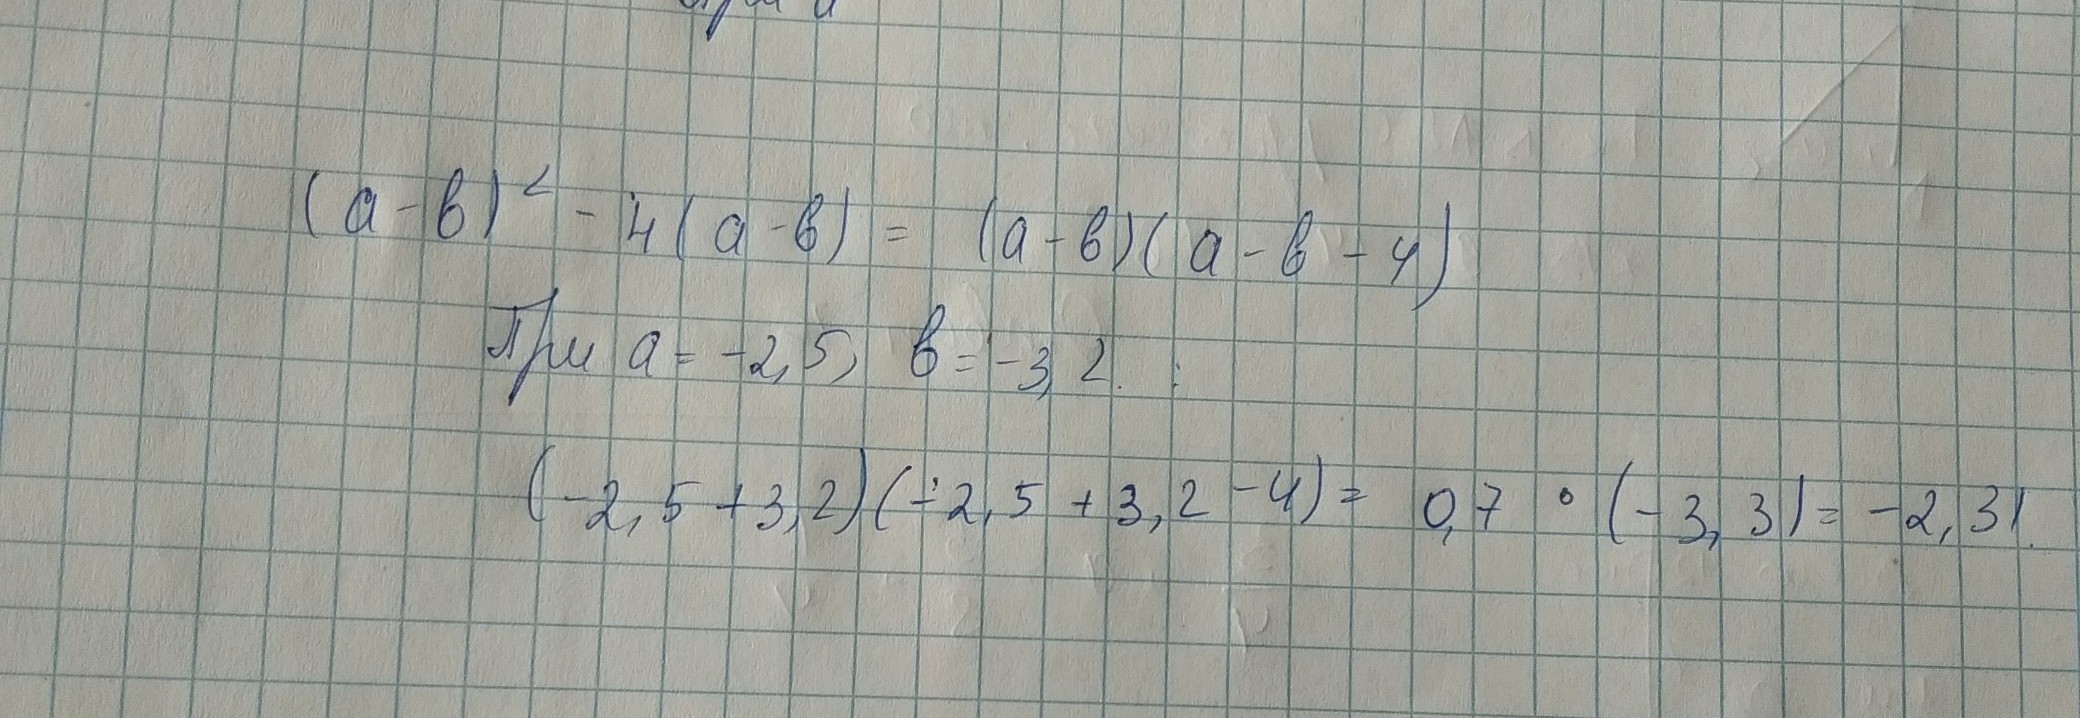 При а
(а-в)² - 4(а-в) = (а-в)(а-в-4)
При а = -2,5, в = -3,2 :
(-2,5+3,2)(-2,5+3,2-4) = 0,7 • (-3,3) = -2,31.